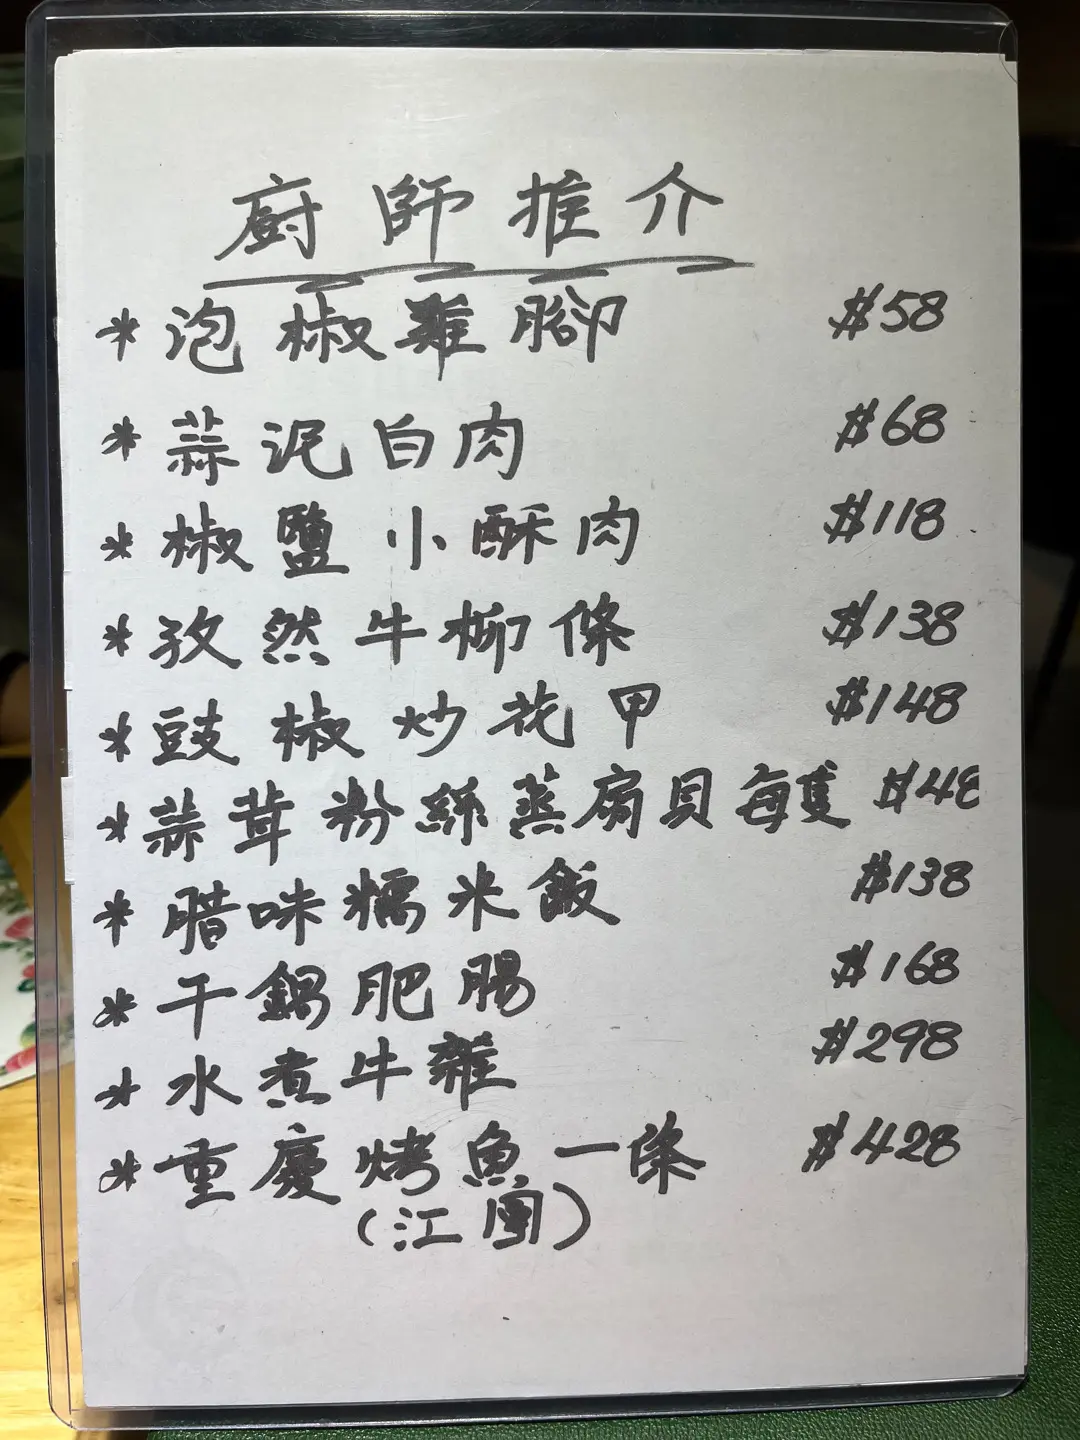 廚師推介
* 泡椒雞腳 $58
* 蒜泥白肉 $68
* 椒鹽小酥肉 $118
* 孜然牛柳條 $138
* 豉椒炒花甲 $148
* 蒜茸粉絲蒸扇貝每隻 $48
* 腊味糯米飯 $138
* 干鍋肥腸 $168
* 水煮牛雜 $298
* 重慶烤魚一條 $428
(江團)